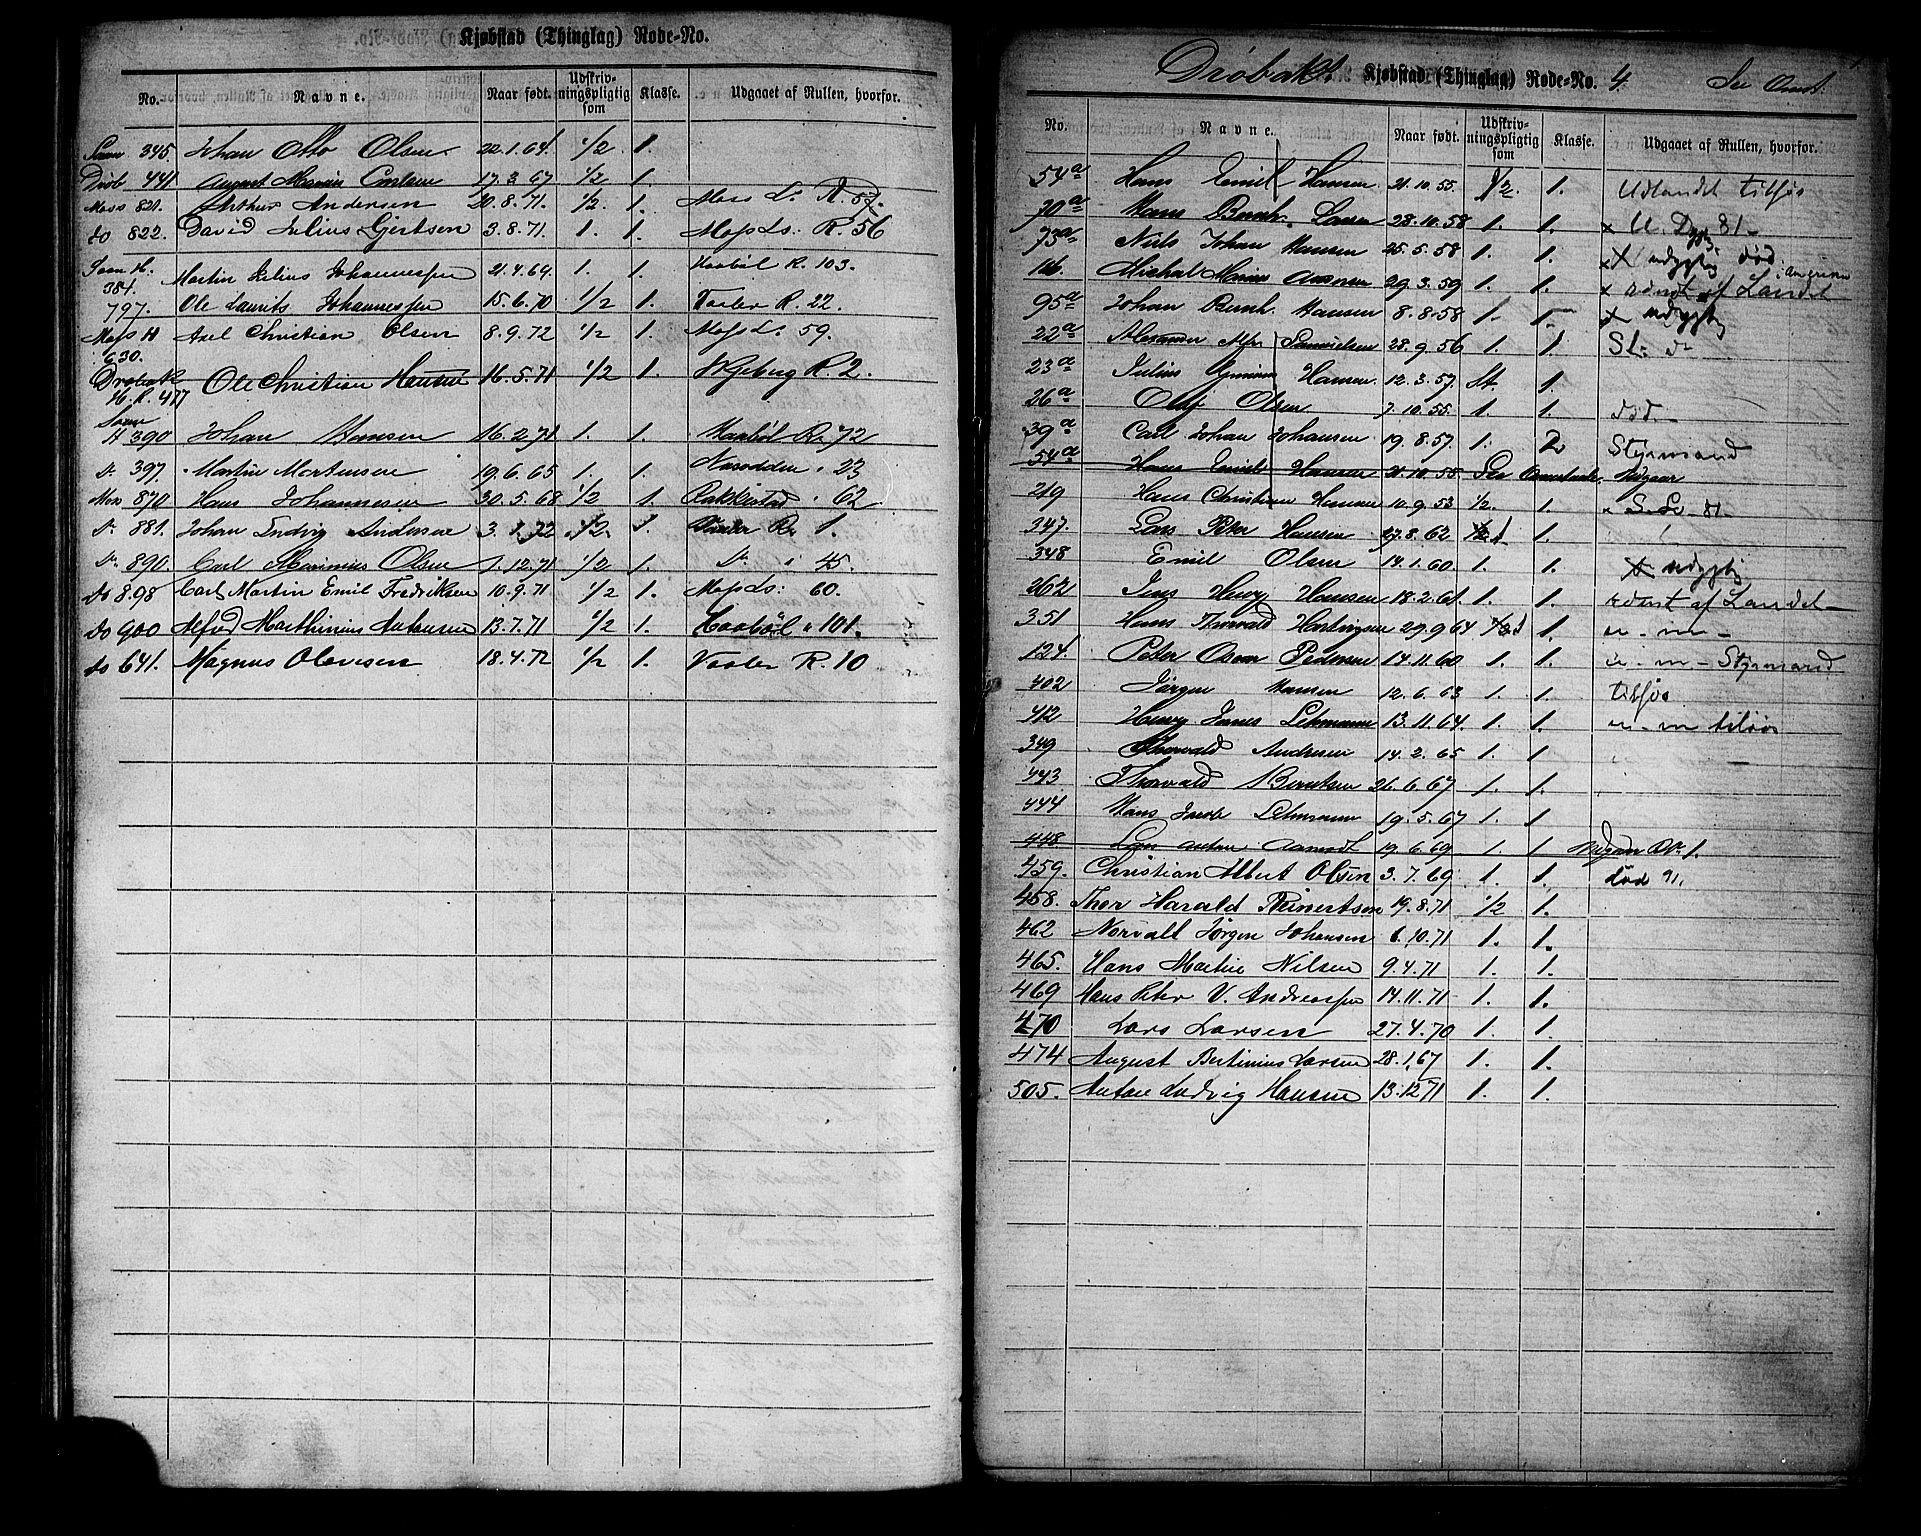 Kjøbstad (Thinglag) Rode-No.
No. Navne. Naar født. Udskrivningspligtig som Klasse. Udgaaet af Rullen, hvorfor.
345. Johan Otto Olsen 22.1.64. 1/2 1.
Drøb 441. August Marius 17.3.67 1/2 1.
Moss 821. Arthur Andersen 20.8.71. 1/2 1. Moss L. R. 57.
do 822. David Julius Gjertsen 3.8.71. 1. 1. Moss Ls: R. 56
384. Martin Julius Johannessen 21.4.64. 1. 1. Haabøl R. 103.
797. Ole Laurits Johannessen 15.6.70 1/2 1. Vaaler R. 22.
Moss H 630. Axel Christian Olsen 8.9.72 1/2 1. Moss L. 59.
Drøbak H.R. 477 Ole Christian Hansen 16.5.71 1/2 1. R. 2.
H 390 Johan Hansen 16.2.71 1. 1. Haabøl R. 72
Do 397. Martin Mortensen 19.6.65 1. 1. Næsodden " 23
Mos 870 Hans Johannesen 30.5.68 1/2 1. Rakkestad " 62
Do 881. Johan Ludvig Andersen 3.1.72 1/2. 1. Vaaler R. 1.
Do 890. Carl Marinius Olsen 1.12.71 1/2 1. Do " 45.
do 898 Carl Martin Emil Fredriksen 10.9.71 1/2 1. Moss Ls: 60.
do 900 Alfod Marthinius Antonsen 13.7.71 1/2 1. Haabøl " 101.
do 641. Magnus Olavesen 18.4.72 1/2 1. Vaaler R. 10
Drøbaks Kjøbstad (Thinglag) Rode-No. 4
No. Navne. Naar født. Udskrivningspligtig som Klasse. Udgaaet af Rullen, hvorfor.
54a Hans Emil Hansen 21.10.55. 1/2. 1. Udlandet tilsjøs
70a Hans Bernh. Larsen 28.10.58 1. 1. x U. 81
73a Niels Johan Hansen 25.5.58 1. 1. x udygtig død
116. Michal Marius 29.3.59 1. 1. x rømt af Landet
95a Johan Bernh. Hansen 8.8.58 1. 1. x udygtig
22a Alexander Alfr Samuelsen 28.9.56 1. 1. St.
23a Julius Hansen 12.3.57. St. 1.
26a Oluf Olsen 7.10.55. 1. 1. død.
39a Carl Johan Johansen 19.8.57. 1. 2 Styrmand
54a Hans Emil Hansen 21.10.55 Udgaar
219 Hans Christian Hansen 10.9.53 1/2. 1. 81.
347. Lars Peter Hansen 27.8.62 1 1.
348 Emil Olsen 14.1.60. 1. 1. x udygtig
262 Jens Henry Hansen 18.2.61. 1. 1. rømt af Landet
351 Hans Thorvald Hartvigsen 29.9.64 1 1. u. m.
124. Peter Oscar Pedersen 14.11.60 1. 1. u. m. Styrmand
402 Jørgen Hansen 12.6.63 1. 1. tilsjøs
412 Henry James Lehmann 13.11.64. 1. 1. u. m tilsjøs
349 Thorvald Andersen 14.2.65 1. 1.
443 Thorvald Berntsen 26.6.67 1. 1.
444 Hans Jacob Lehmann 19.5.67 1. 1
448 Lars Anton Aamodt 19.6.69 1. 1 Udgaar 1.
459. Christian Albert Olsen 3.7.69 1. 1. død 91.
458. Thor Harald Reinertsen 19.8.71 1/2 1.
462 Norvall Jørgen Johansen 6.10.71 1. 1.
465. Hans Martin Nilsen 9.4.71 1. 1.
469 Hans Peter V. Andreassen 14.11.71 1. 1.
470 Lars Larsen 27.4.70 1. 1.
474 August Bertinius Larsen 28.1.67 1. 1.
505. Anton Ludvig Hansen 13.12.71 1. 1.